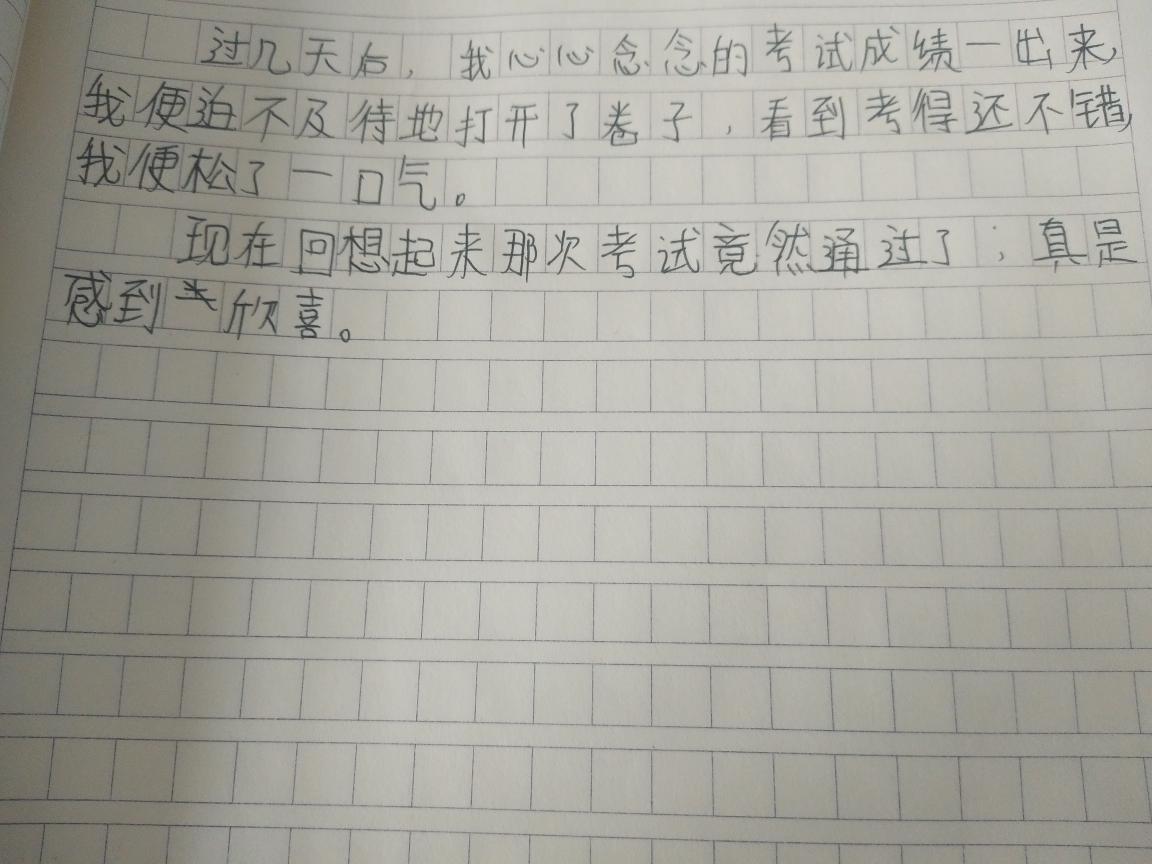 过几天后，我心心念念的考试成绩一出来，
我便迫不及待地打开了卷子，看到考得还不错，
我便松了一口气。
现在回想起来那次考试竟然通过了；真是
感到欣喜。